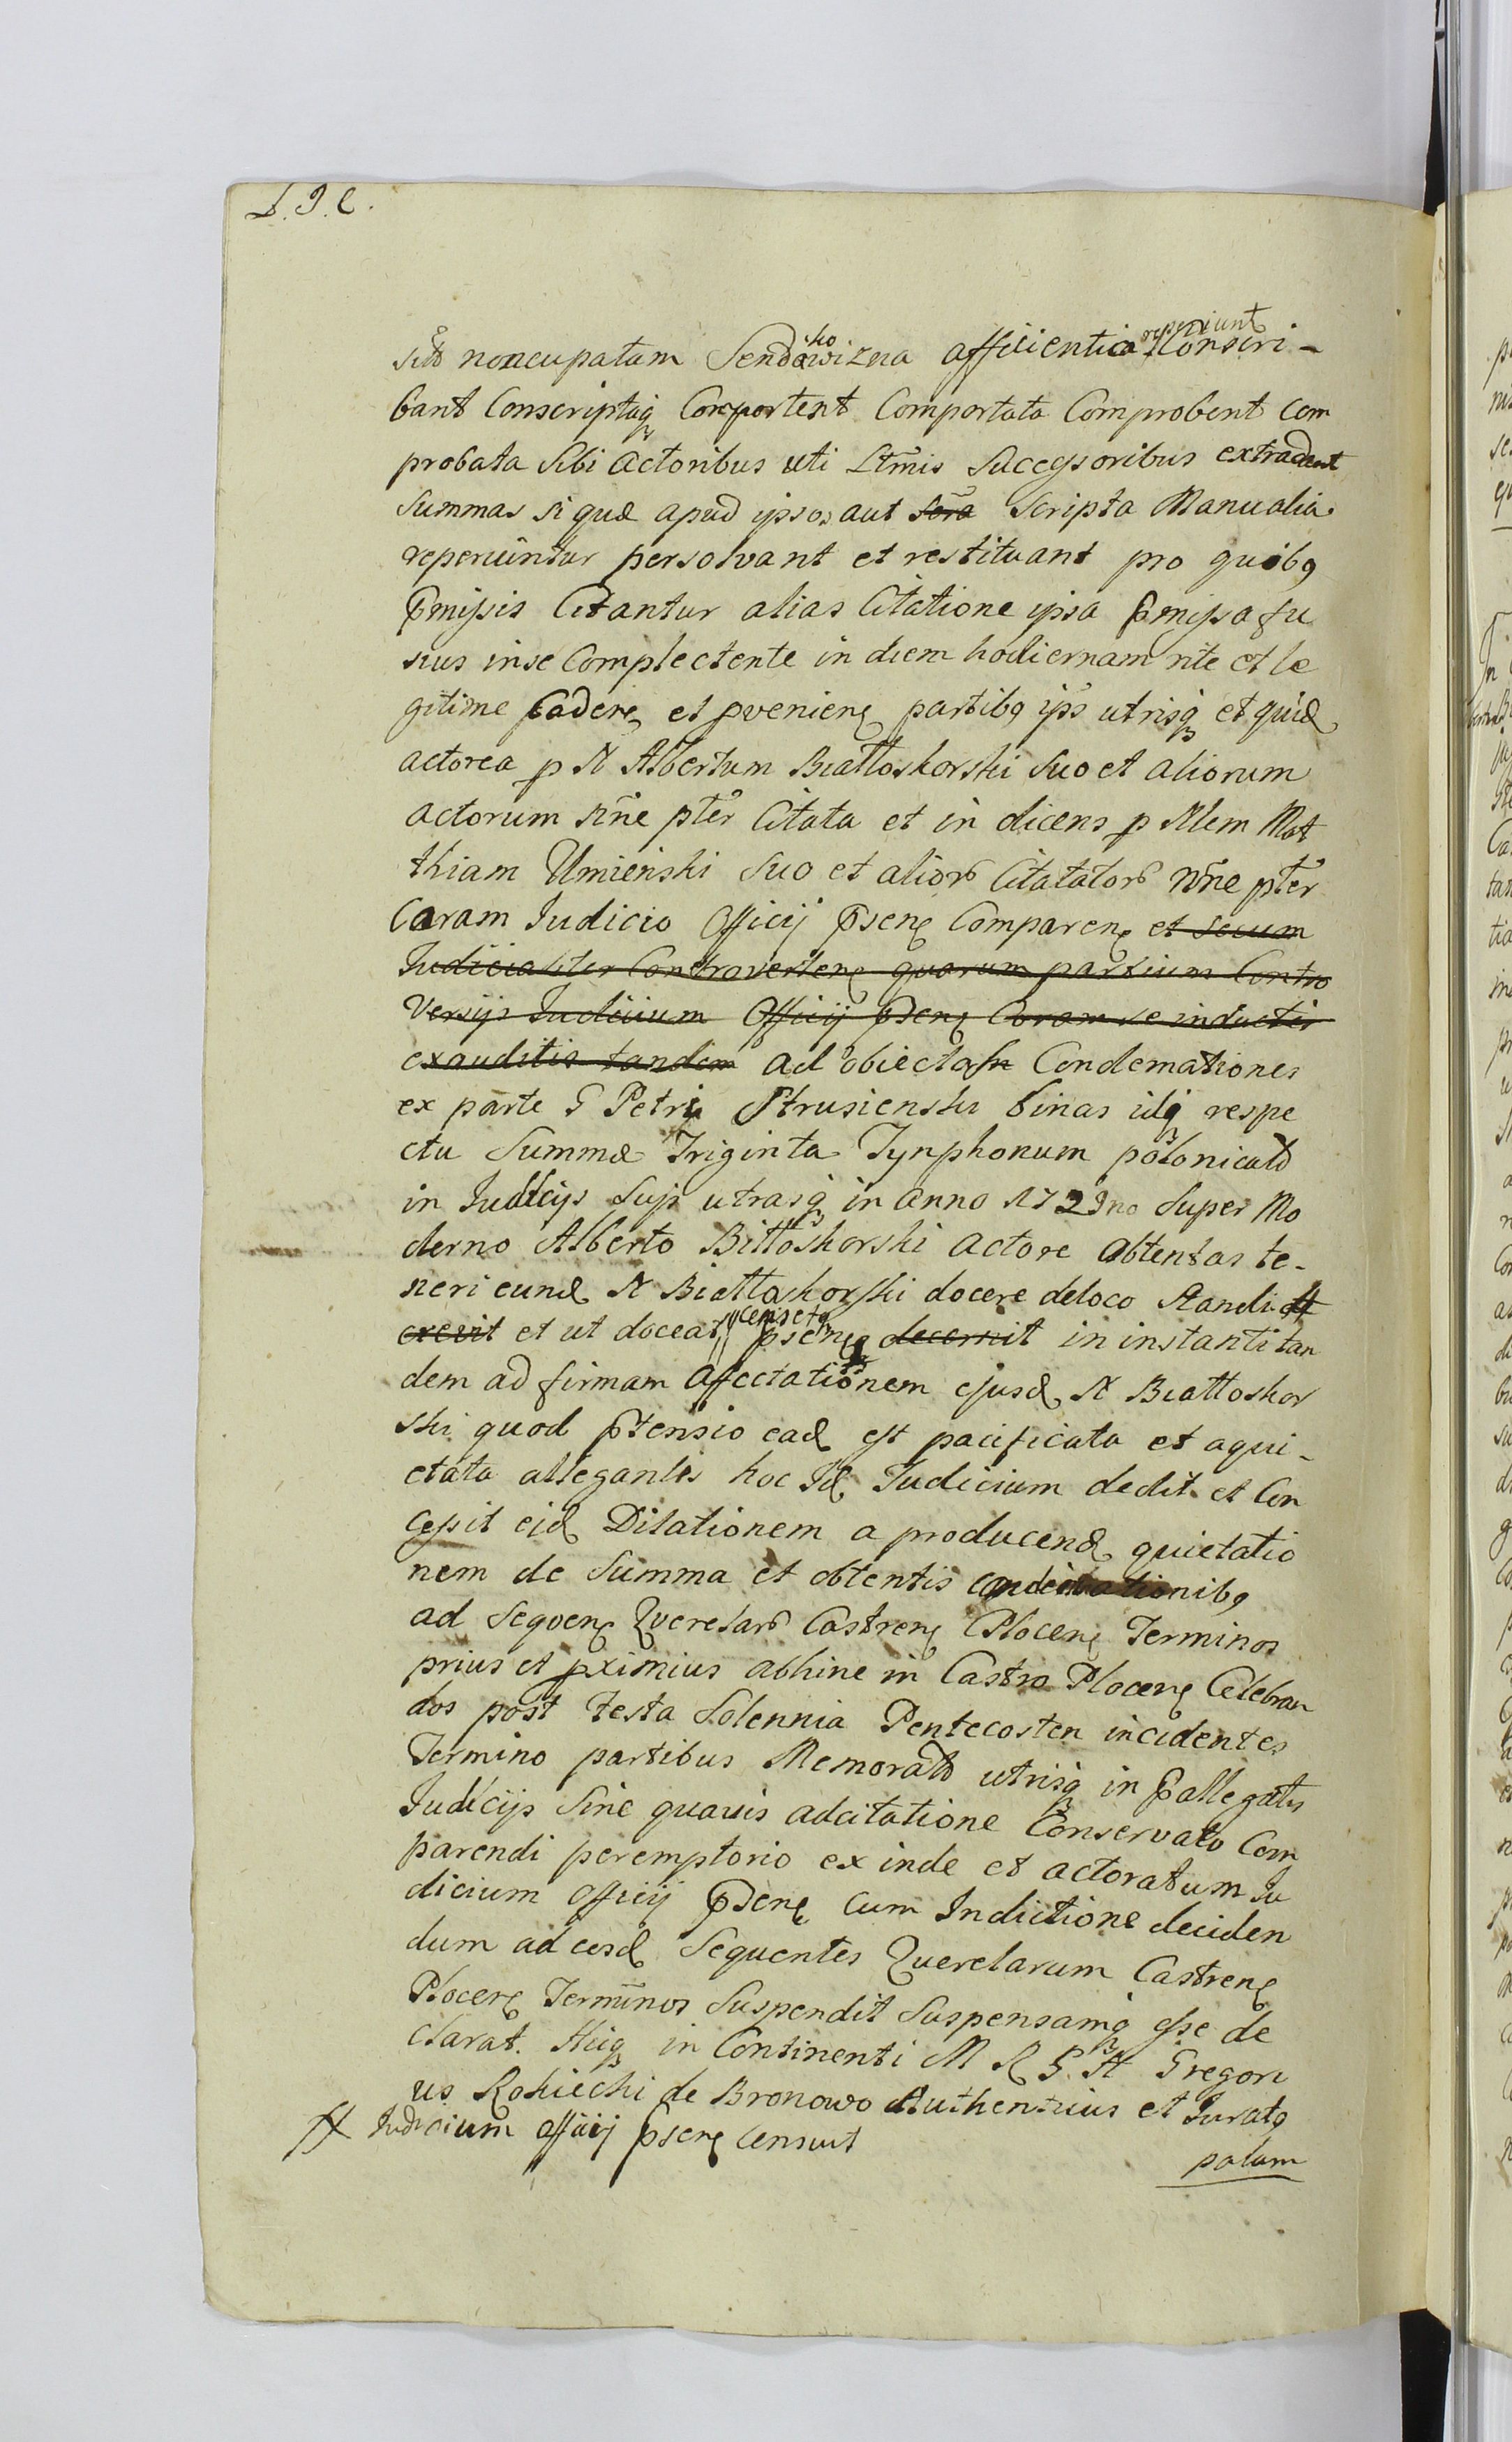 L. J. C.
reperiunt
sko
sive noncupatam Sendowizna afficientia Conscri-
bant Conscriptaq Comportent Comportata Comprobent Com
probata sibi Actoribus uti Ltmis Sucessoribus extradent
Summas si quæ apud ipsos aut sora Scripta Manualia
reperiuntur persolvant et restituant pro quibq
Pmissis Citantur alias Citatione ipsa Pmissa fu
sius in se Complectente in diem hodiernam rite et le
gitime Caden et pvenien partibq ips utrisq et quid
actorea p N Albertum Białłoskorski Suo et aliorum
actorum nne pter Citata et in dicens p Nlem Mat
thiam Umienski Suo et alior Citatator nne pter
Coram Iudicio Officij Psen Comparen et secum
Iudicialiter Controverten quarum partium Contro
Versijs Iudicium Officij Psen Coram se inductis
exauditis tandem ad obiectas Condemationes
ex parte G Petri Strusienski binas idq respe
ctu Summæ Triginta Tynphonum polonical
in Iudicijs Sujs utrasq in Anno 1723no Super Mo
derno Alberto Biłłoskorski Actore Obtentas te-
neri eund N Białłoskorski docere de loco Standi ff
crevit et ut doceat censet psen decernit in instanti tan
dem ad firmam Affectationem ejusd N Białłoskor
ski quod Ptensio ead est pacificata et aqui-
etata allegantis hoc Id Iudicium dedit et Con
cessit eid Dilationem a producend quietatio
nem de Summa et obtentis condemnationibq
ad Sequen Querelar Castren Plocen Terminos
prius et pximius abhinc in Castro Plocen Celebran
dos post Festa Solennia Pentecosten incidentes
Termino partibus Memorat utrisq in Pallegatis
Iudicijs Sine quavis adcitatione Conservato Com
parendi peremptorio ex inde et actoratum Iu
dicium officij Psen cum Indictione deciden
dum ad eosd Sequentes Querelarum Castren
Plocen Terminos Suspendit Suspensamq esse de
clarat. Hicq in Continenti M R G. N Gregori
us Rokicki de Bronowo Authenticus et Iuratq
ff Iudicium officij psen censuit
palam